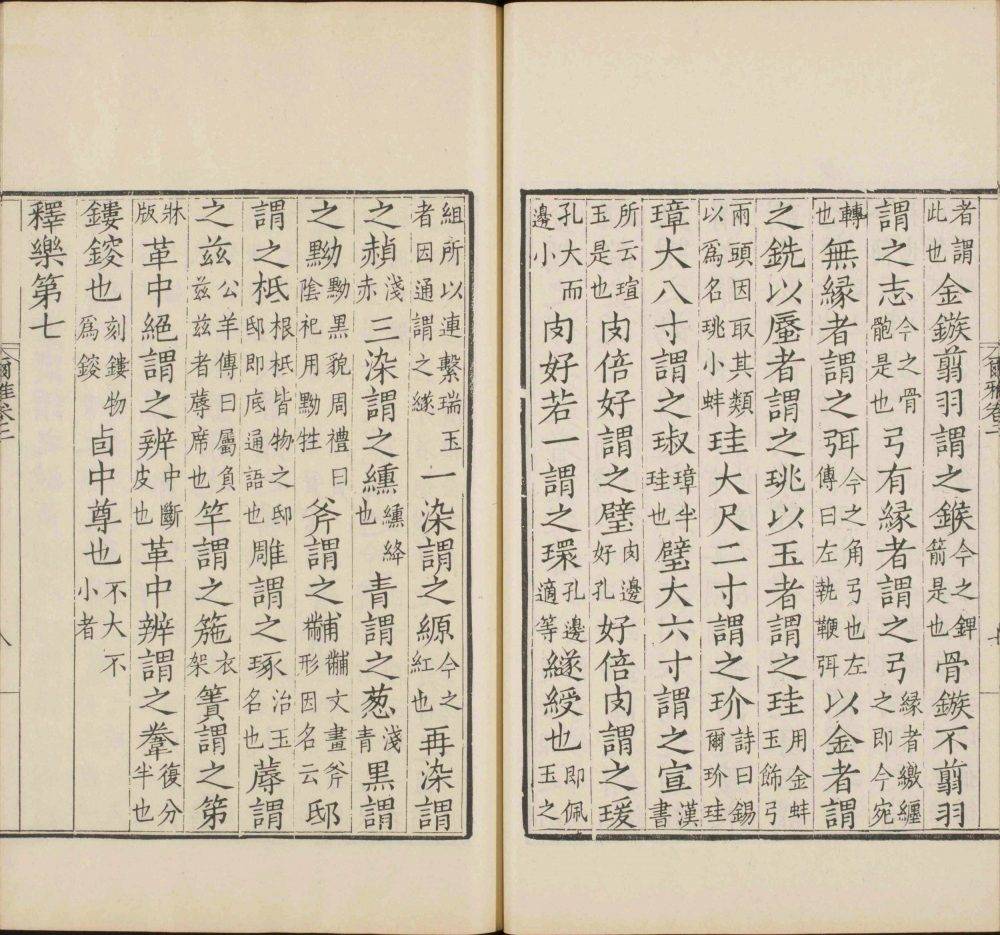 爾雅卷二
者謂此也金鏃翦羽謂之鍭今之錍箭是也骨鏃不翦羽
謂之志今之骨骲是也弓有緣者謂之弓緣者繳纏之即今宛
轉也無緣者謂之弭今之角弓也左傳曰左執鞭弭以金者謂
之銑以蜃者謂之珧以玉者謂之珪用金蚌玉飾弓
兩頭因取其類以爲名珧小蚌珪大尺二寸謂之玠詩曰錫爾玠珪
璋大八寸謂之琡璋半珪也璧大六寸謂之宣漢書
所云瑄玉是也肉倍好謂之璧肉邊好孔好倍肉謂之瑗
孔大而邊小肉好若一謂之環孔邊適等繸綬也即佩玉之
組所以連繫瑞玉者因通謂之繸一染謂之縓今之紅也再染謂
之赬淺赤三染謂之纁纁絳也青謂之葱淺青黑謂
之黝黝黑貌周禮曰陰祀用黝牲斧謂之黼黼文畫斧形因名云邸
謂之柢根柢皆物之邸邸即底通語也雕謂之琢治玉名也蓐謂
之茲公羊傳曰屬負茲茲者蓐席也竿謂之箷衣架簀謂之第
牀版革中絕謂之辨中斷皮也革中辨謂之韏復分半也
鏤鎪也刻鏤物爲鎪卣中尊也不大不小者
釋樂第七
爾雅卷二
八